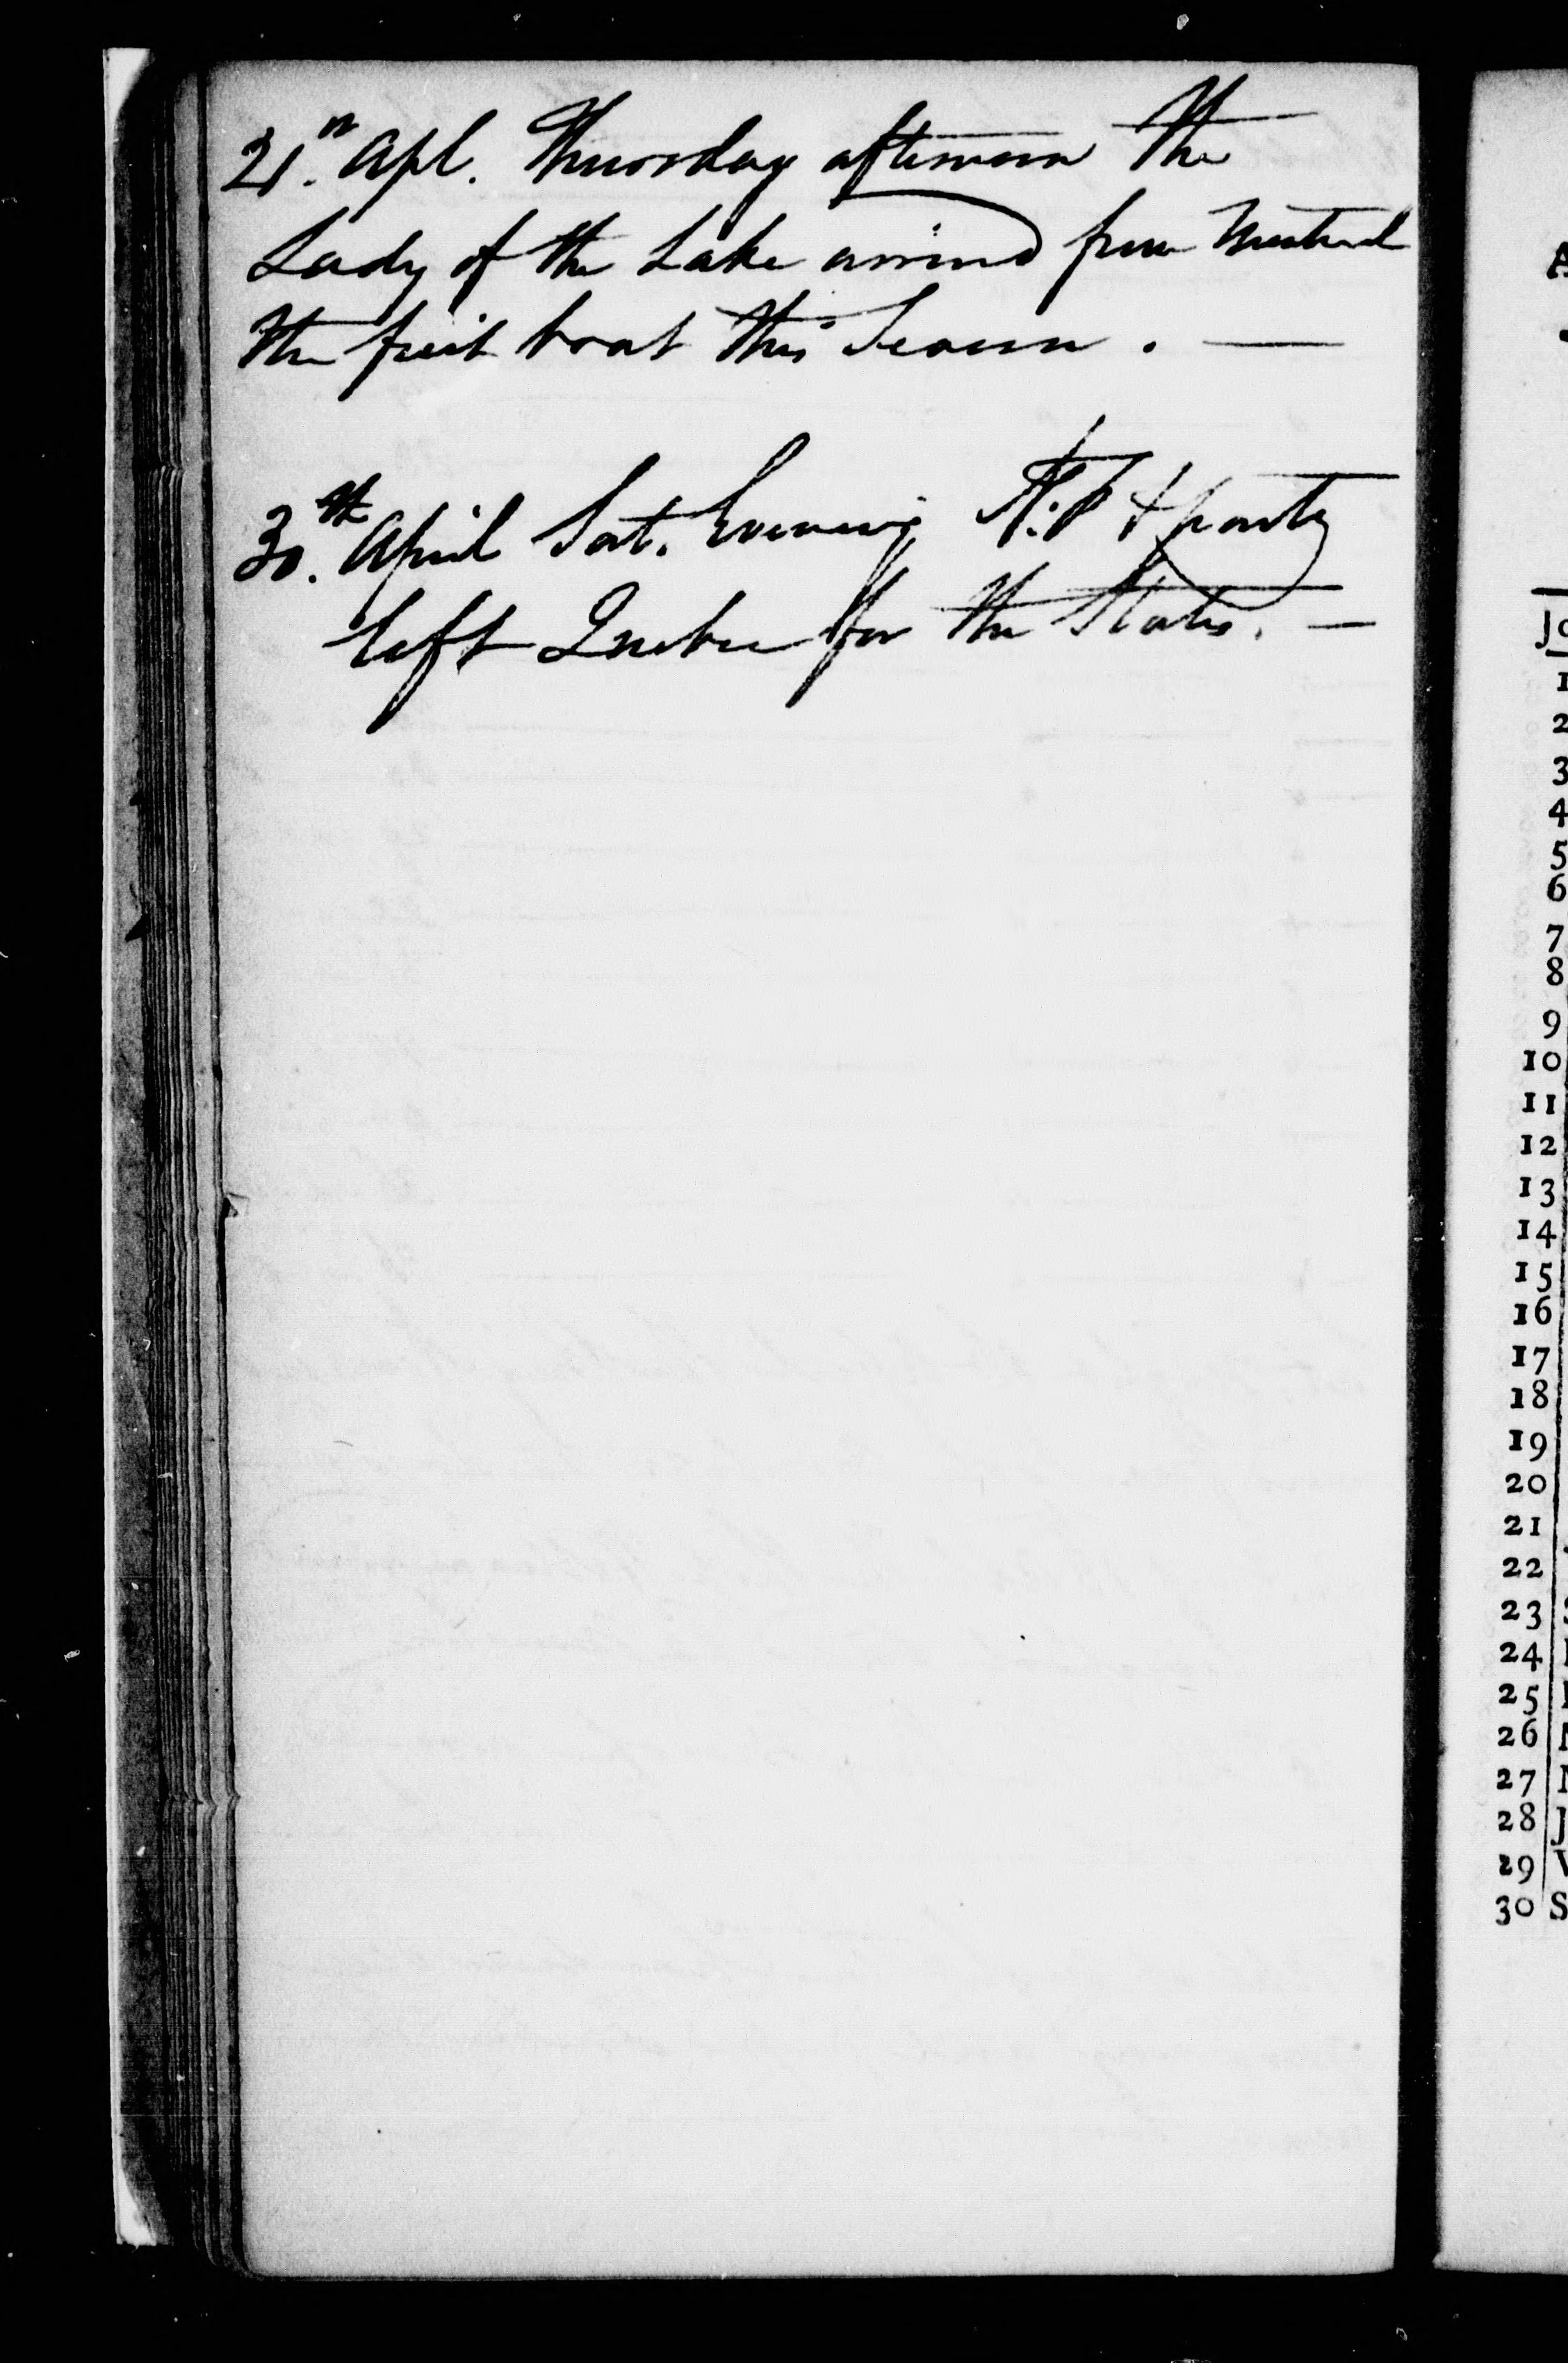 21.st Apl. Thursday afternoon the
Lady of the Lake arrived from Montreal
the first boat this Season. —
30.th April Sat. Evening & party
left Quebec for the States. —
A
Jo
1
2
3
4
5
6
7
8
9
10
11
12
13
14
15
16
17
18
19
20
21
22
23
24
25
26
27
28 J
29
30 S